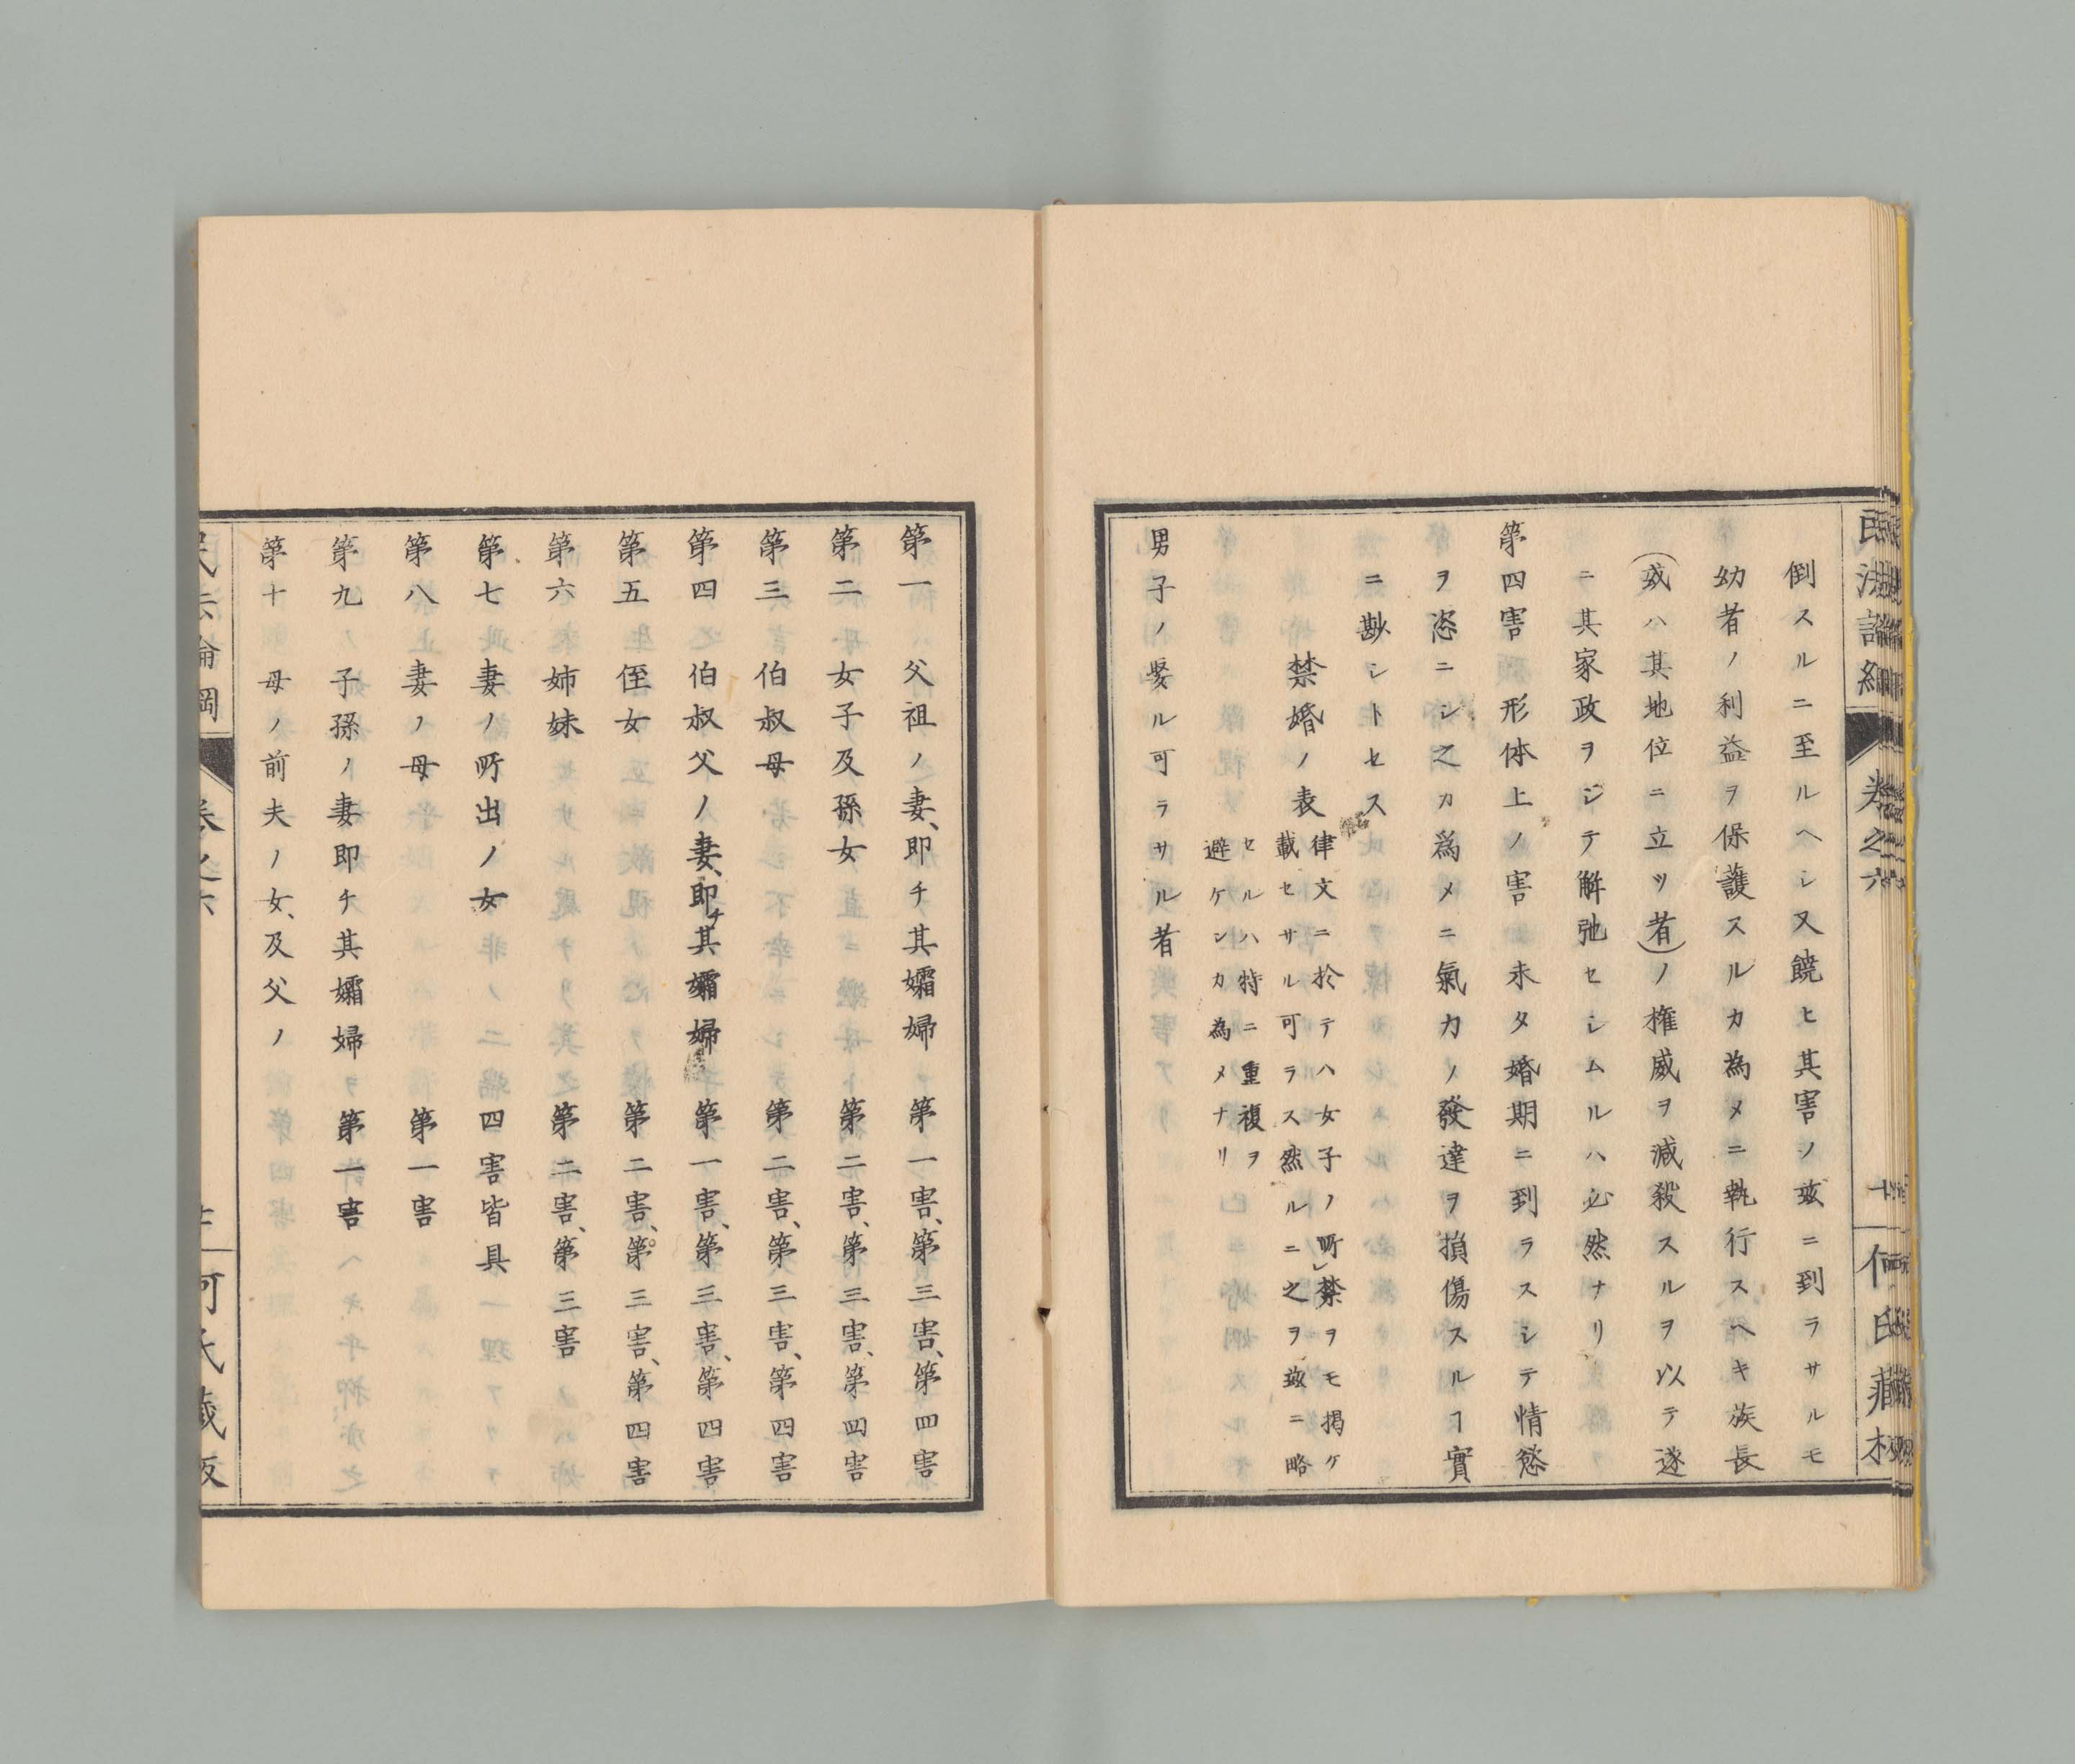 倒スルニ至ルヘシ又饒ヒ其害ノ玆ニ到ラサルモ
幼者ノ利益ヲ保護スルカ為メニ執行スヘキ族長
(或ハ其地位ニ立ツ者)ノ権威ヲ減殺スルヲ以テ遂
ニ其家政ヲシテ解弛セシムルハ必然ナリ
第四害 形体上ノ害 未タ婚期ニ到ラスシテ情慾
ヲ恣ニシ之カ為メニ氣力ノ發達ヲ損傷スルヿ實
ニ尠シトセス
禁婚ノ表
律文ニ於テハ女子ノ所禁ヲモ掲ケ
載セサル可ラス然ルニ之ヲ玆ニ略
セルハ特ニ重複ヲ
避ケンカ為メナリ
男子ノ娶ル可ラサル者
第一 父祖ノ妻、即チ其孀婦 第一害、第三害、第四害
第二 女子及孫女 第二害、第三害、第四害
第三 伯叔母 第二害、第三害、第四害
第四 伯叔父ノ妻、即チ其孀婦 第一害、第三害、第四害
第五 侄女 第二害、第三害、第四害
第六 姉妹 第二害、第三害
第七 妻ノ所出ノ女 四害皆具
第八 妻ノ母 第一害
第九 子孫ノ妻即チ其孀婦 第一害
第十 母ノ前夫ノ女、及父ノ
卷之六
何氏藏板